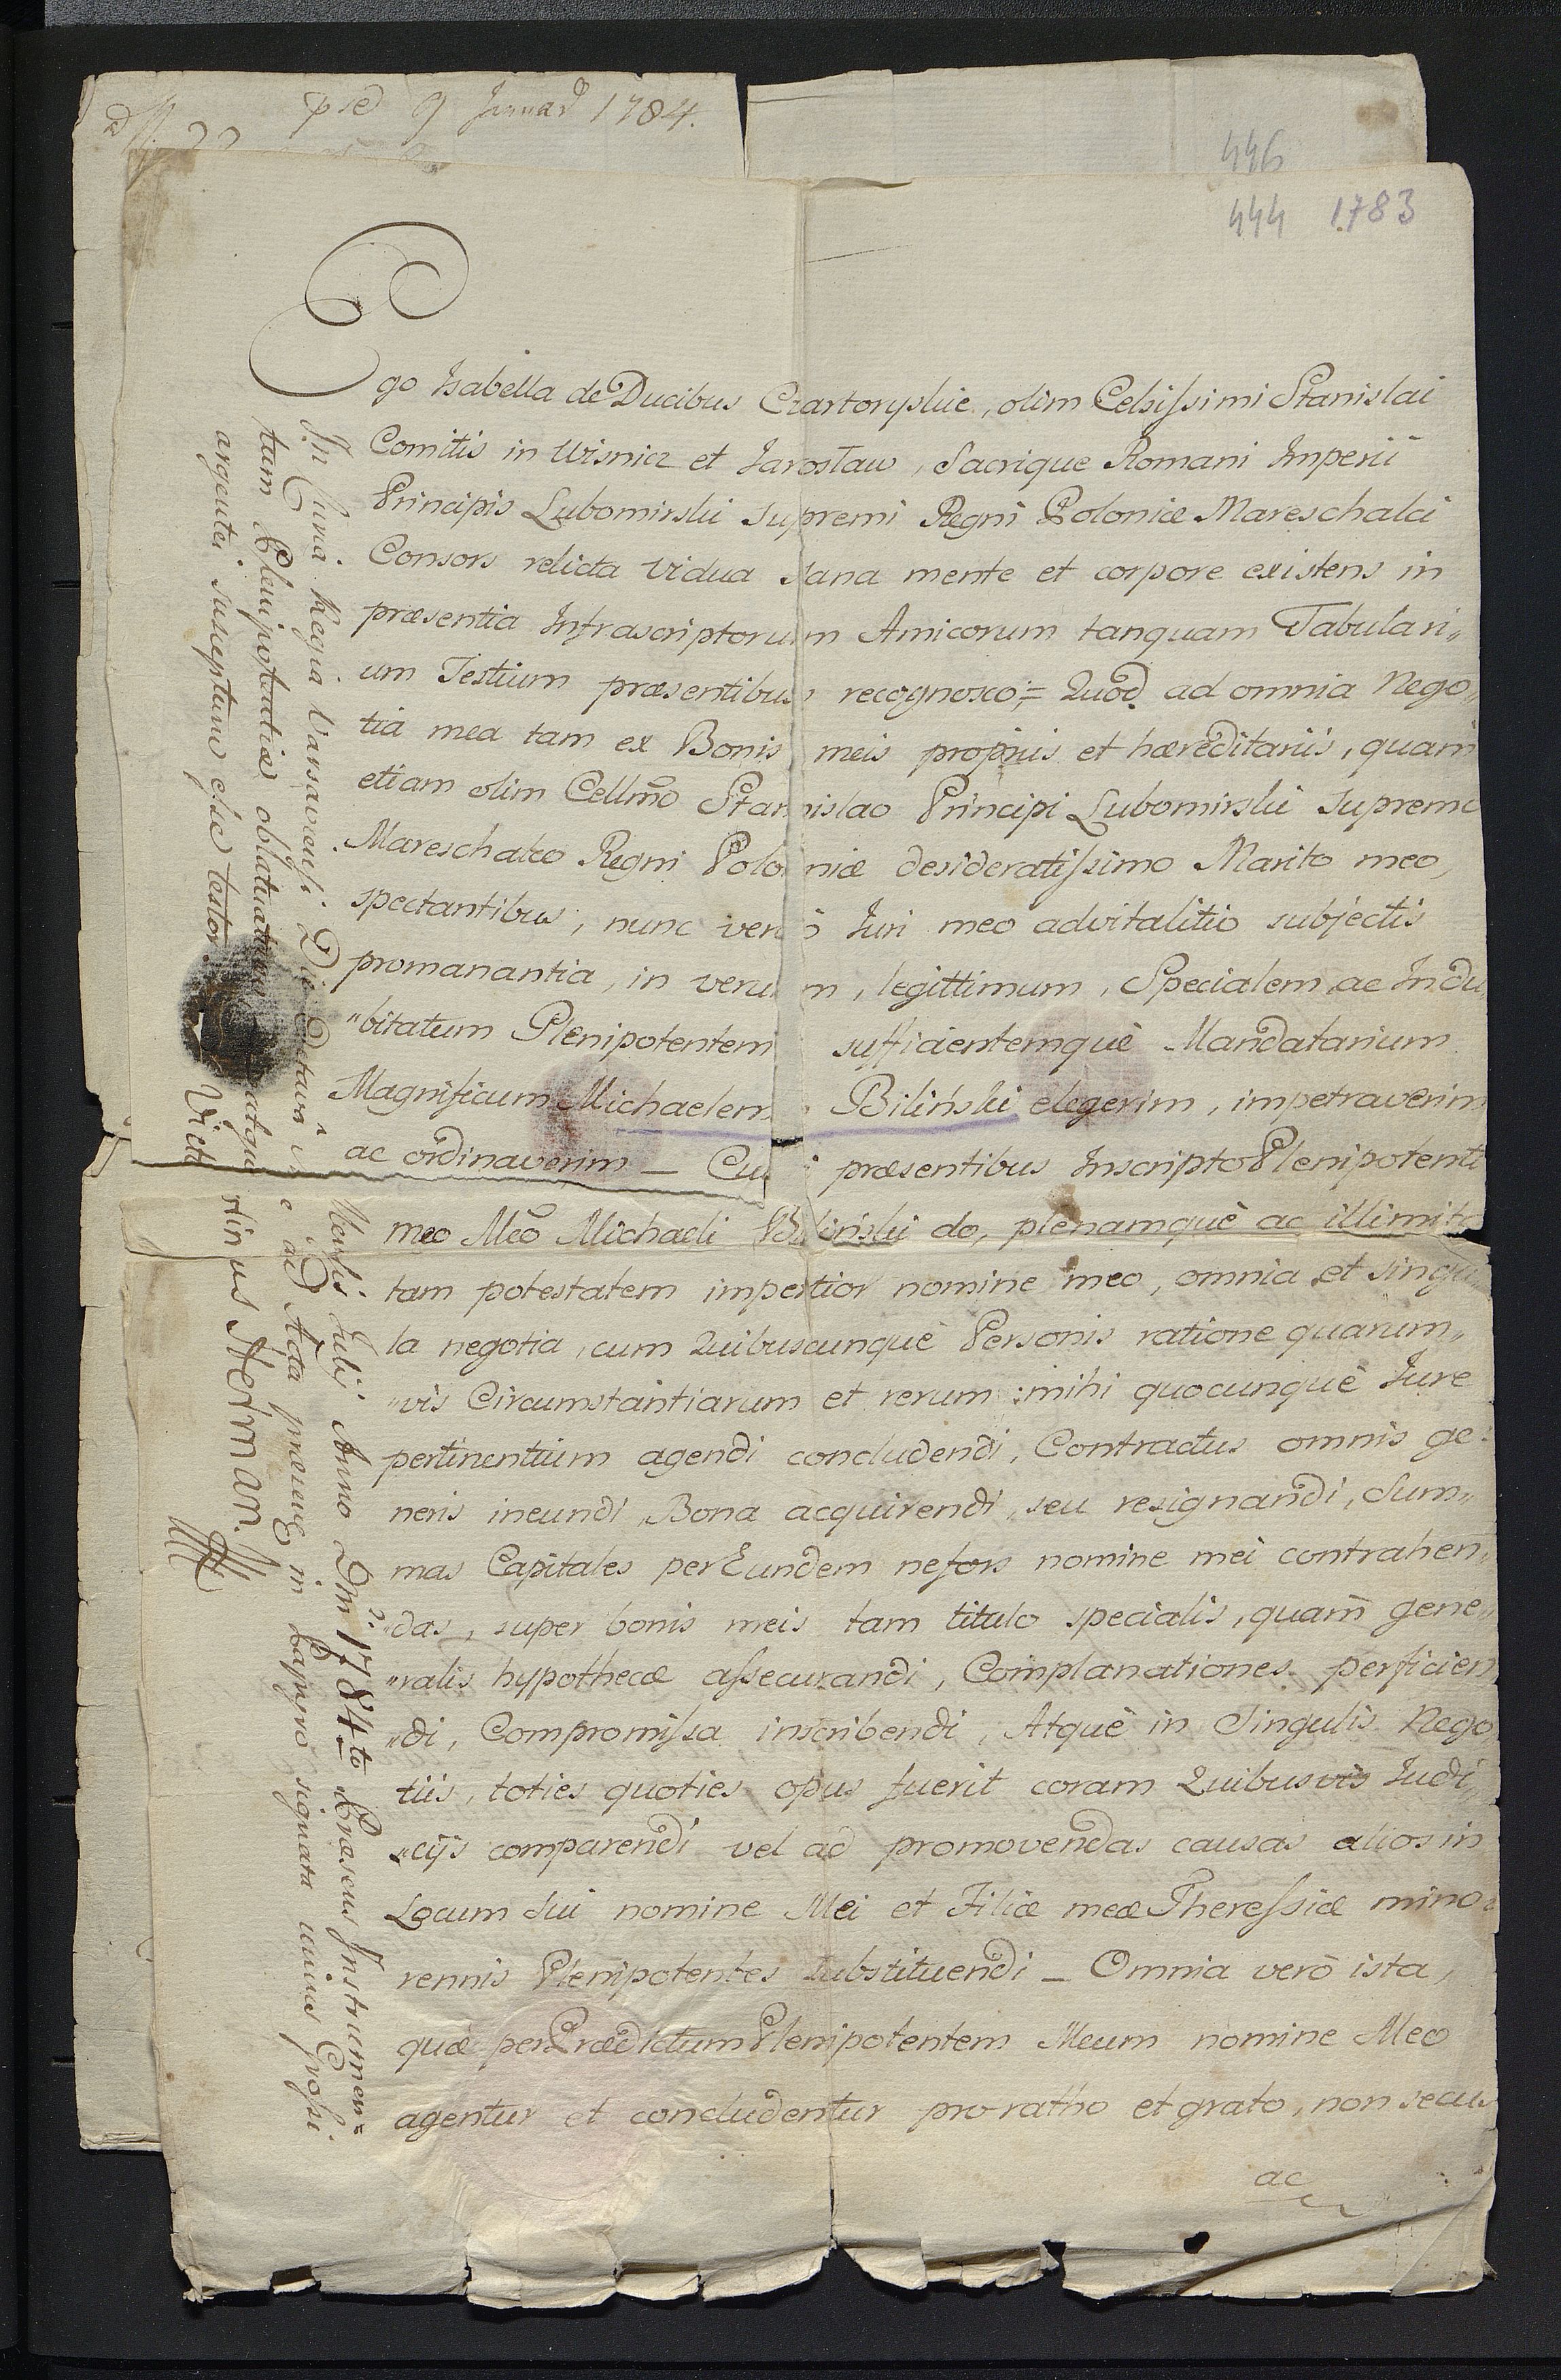 pręd 9 Januar 1784.
446
444 1783
Ego Isabella de Ducibus Czartoryskie, olim Celsissimi Stanislai
Comitis in Wisnicz et Jarosław, Sacrique Romani Imperii
Principis Lubomirski Supremi Regni Poloniæ Mareschalci
Consors relicta vidua sana mente et corpore existens in
præsentia Infrascriptorum Amicorum tanquam Tabulari„
um Testium præsentibus recognosco;= Quod ad omnia Nego„
tia mea tam ex Bonis meis propriis et hæreditariis, quam
etiam olim Cellmo Stanislao Principi Lubomirski Supremo
Mareschalco Regni Poloniæ desideratissimo Marito meo,
spectantibus, nunc verò Iuri meo advitalitio subjectis
promanantia, in verum, legittimum, Specialem ac Indu„
"bitatum Plenipotentem sufficientemquè Mandatarium
Magnificum Michaelem Biliński elegerim, impetraverim
ac ordinaverim — Cui præsentibus Inscripto Plenipotenti
meo Mco Michaeli Biliński do, plenamquè ac illimita
tam potestatem impertior nomine meo, omnia et singu„
la negotia, cum Quibuscunquè Personis ratione quarum„
"vis Circumstantiarum et rerum mihi quocunquè Iure
pertinentium agendi concludendi, Contractus omnis ge:
neris ineundi, Bona acquirendi, seu resignandi, Sum„
mas Capitales per Eundem nefors nomine mei contrahen„
"das, super bonis meis tam titulo specialis, quam gene„
"ralis hypothecæ assecurandi, Complanationes perficien
"di, Compromissa inscribendi, Atquè in Singulis Nego
tiis, toties quoties opus fuerit coram Quibusvis Iudi„
"cijs comparendi vel ad promovendas causas alios in
Locum sui nomine Mei et Filiæ meæ Theressiæ mino„
rennis Plenipotentes substituendi — Omnia verò ista,
quæ per Prædictum Plenipotentem Meum nomine Meo
agentur et concludentur pro ratho et grato, non secus
ac
In Curia Regia Varsaviensi Die Mensis Julij Anno Dni 1784to Præsens Instrumen=
tum Plenipotentiæ oblatum ad Acta præsens in Papyro signata unius Grossi
argentei susceptum esse testor.
Victorinus Herman. Mp